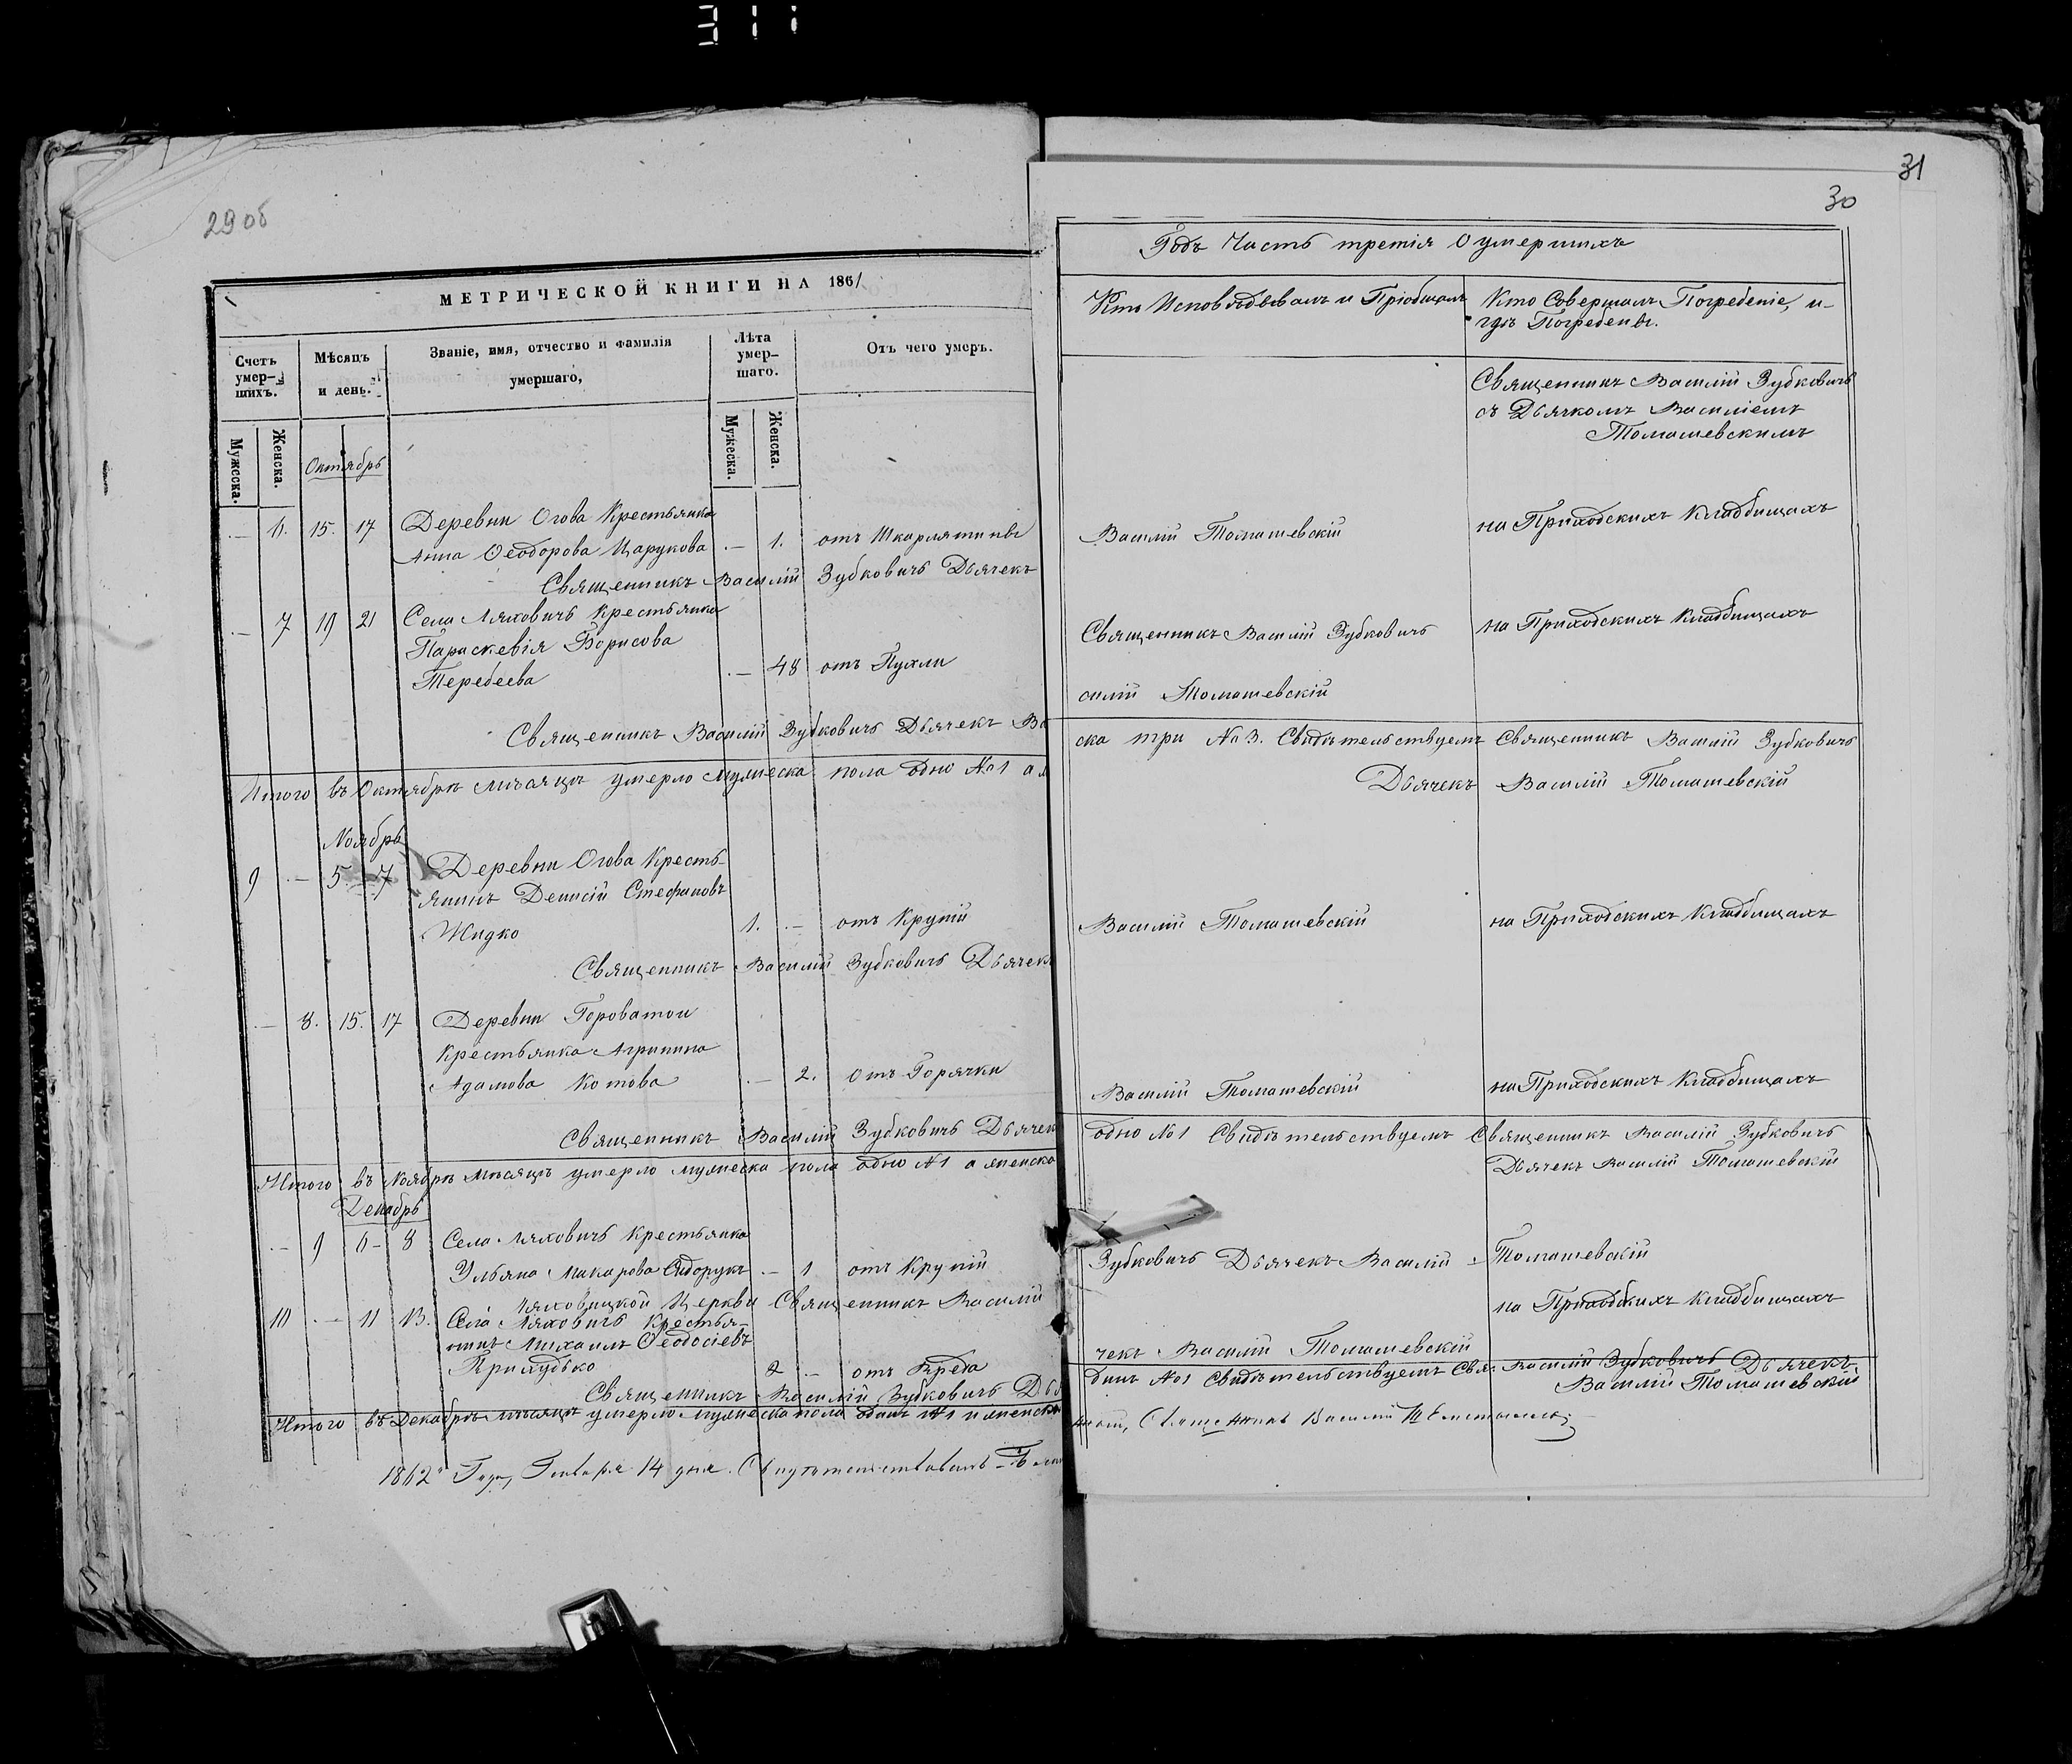 311
31
30
29 об
МЕТРИЧЕСКОЙ КНИГИ НА 1861
Счетъ умер-шихъ.
Мѣсяцъ и день.
Званіе, имя, отчество и фамилія умершаго,
Лѣта умер-шаго.
Отъ чего умеръ.
Мужеска.
Женска.
Мужеска.
Женска.
Октябрь
— 6. 15. 17 Деревни Огова Крестьянка
Анна Ѳеодорова Царукова — 1. отъ Шкарлятины
Священникъ Василій Зубковичь Дьячекъ
— 7 19 21 Села Ляховичь Крестьянка
Параскевія Борисова
Теребеева — 48 отъ Пухли
Священникъ Василій Зубковичь Дьячекъ Ва
Итого въ Октябрѣ мѣсяцѣ умерло мужеска пола одно №1 а ж
Ноябрь
9 — 5 7 Деревни Огова Кресть-
янинъ Денисій Стефановъ
Жидко 1. — отъ Крупій
Священникъ Василій Зубковичь Дьячекъ
— 8. 15. 17 Деревни Гороватой
Крестьянка Агрипина
Адамова Котова — 2. отъ Горячки
Священникъ Василій Зубковичь Дьячек
Итого въ Ноябрѣ мѣсяцѣ умерло мужеска пола одно №1 а женска
Декабрь
— 9 6 – 8 Села Ляховичь Крестьянка
Ульяна Макарова Сидорукъ — 1 отъ Крупій
Ляховицкой Церкви Священникъ Василій
10 — 11 13. Села Ляховичь Крестья-
нинъ Михаилъ Ѳеодосіевъ
Прилудько 2 — отъ Вреда
Священникъ Василій Зубковичь Дья
Итого въ Декабрѣ мѣсяцѣ умерло мужеска пола одинъ №1 и женска
1862 Года, Генваря 14 дня.
Годъ Часть третія О умершихъ
Кто Исповѣдывалъ и Пріобщалъ
Кто Совершалъ Погребеніе, и-
гдѣ Погребены.
Священникъ Василій Зубковичь
съ Дьячкомъ Василіемъ
Томашевскимъ
Василій Томашевскій на Приходскихъ Кладбищахъ
Священникъ Василій Зубковичь на Приходскихъ Кладбищахъ
силій Томашевскій
ска три №3. Свидѣтельствуемъ Священникъ Василій Зубковичь
Дьячекъ Василій Томашевскій
Василій Томашевскій на Приходскихъ Кладбищахъ
Василій Томашевскій на Приходскихъ Кладбищахъ
одно №1 Свидѣтельствуемъ Священникъ Василій Зубковичь
Дьячекъ Василій Томашевскій
Зубковичь Дьячекъ Василій Томашевскій
на Приходскихъ Кладбищахъ
чекъ Василій Томашевскій
динъ №1 Свидѣтельствуемъ Свя. Василій Зубковичь Дьячекъ
Василій Томашевскій
Священникъ Василій